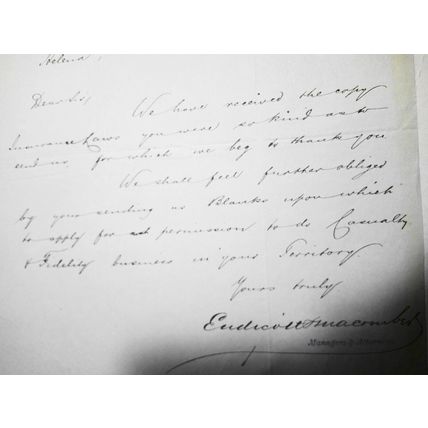 Helena,
Dear Sir, We have received the copy
Insurance Laws you were so kind as to
send us, for which we beg to thank you
We shall feel further obliged
by your sending us Blanks upon which
to apply for permission to do Casualty
& Fidelity business in your Territory.
Yours truly.
Endicott & Macomber
Managers & Attorneys